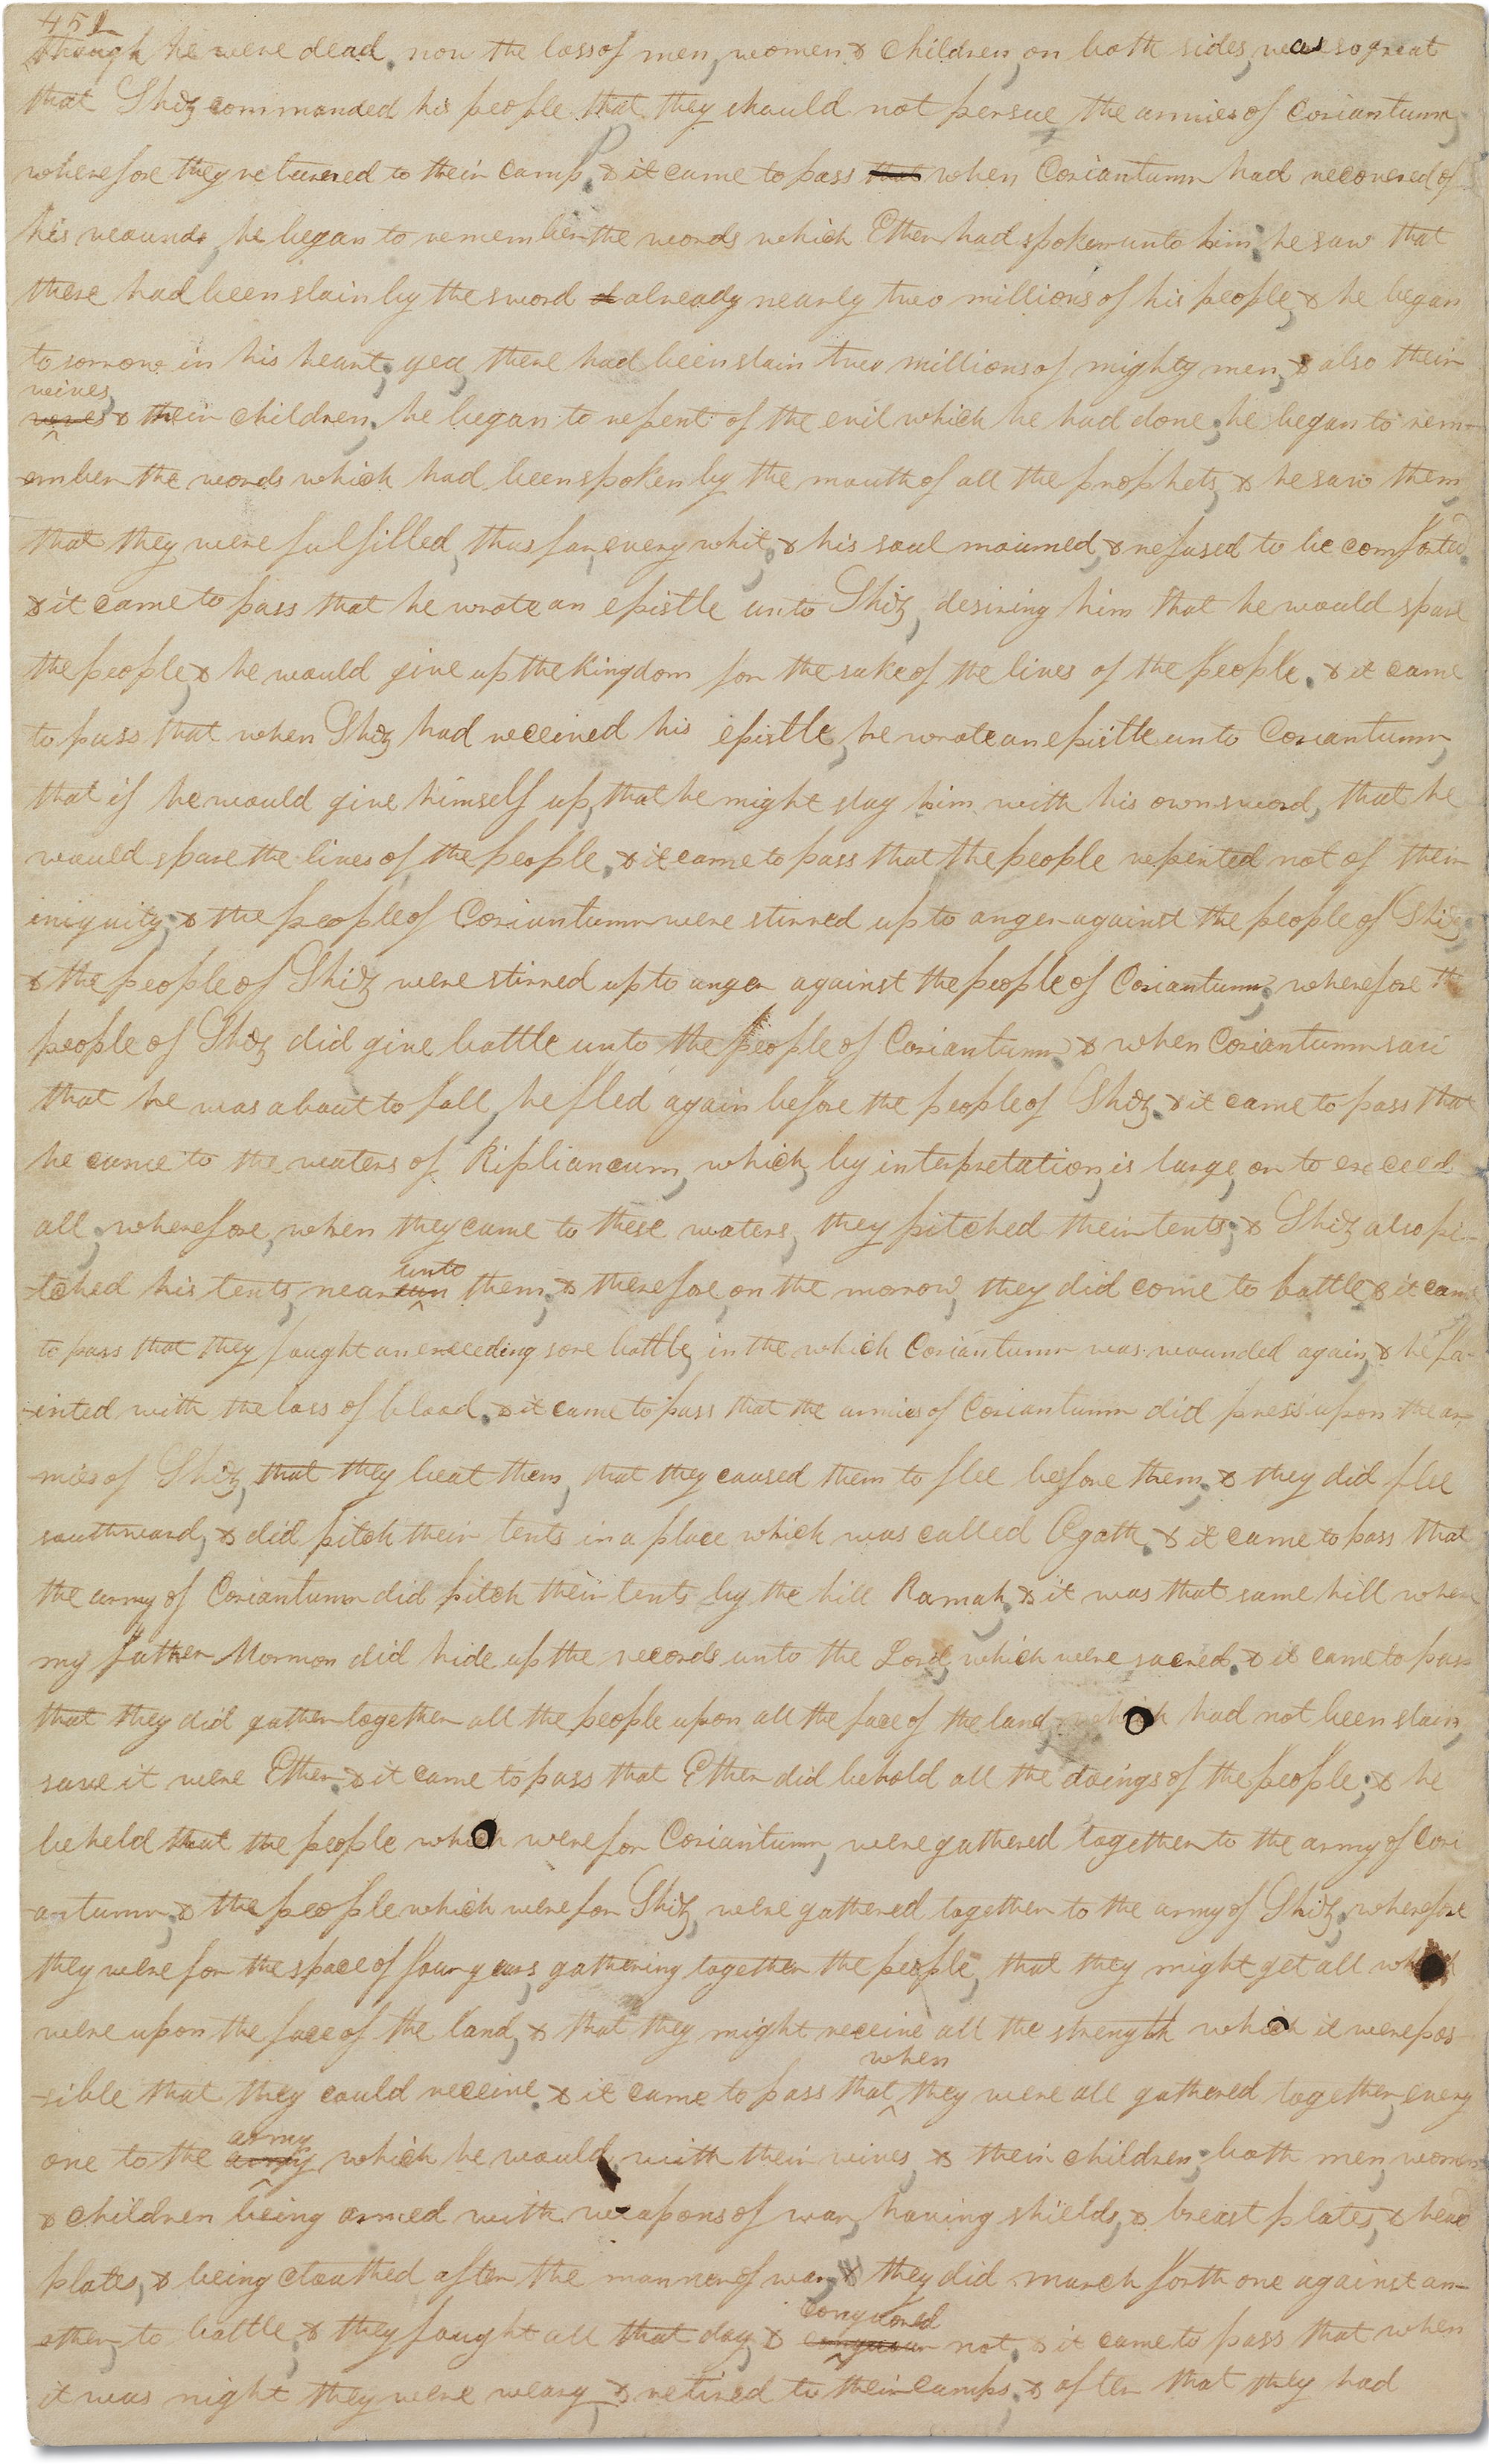 451
though he were dead. now the loss of men, women & children, on both sides, was so great
that Shiz commanded his people that they should not persue the armies of Coriantumr;
wherefore they returned to their camp. & it came to pass that when Coriantumr had recovered of
his wounds, he began to remember the words which Ether had spoken unto him; he saw that
there had been slain by the sword already nearly two millions of his people, & he began
to sorrow in his heart; yea, there had been slain two millions of mighty men, & also their
wives,
& their children; he began to repent of the evil which he had done; he began to rem-
-ember the words which had been spoken by the mouth of all the prophets, & he saw them
that they were fulfilled, thus far, every whit; & his soul mourned, & refused to be comforted.
& it came to pass that he wrote an epistle unto Shiz, desiring him that he would spare
the people, & he would give up the kingdom for the sake of the lives of the people. & it came
to pass that when Shiz had received his epistle, he wrote an epistle unto Coriantumr,
that if he would give himself up, that he might slay him with his own sword, that he
would spare the lives of the people. & it came to pass that the people repented not of their
iniquity; & the people of Coriantumr were stirred up to anger against the people of Shiz;
& the people of Shiz were stirred up to anger against the people of Coriantumr; wherefore th
people of Shiz did give battle unto the people of Coriantumr & when Coriantumr saw
that he was about to fall, he fled again before the people of Shiz. & it came to pass that
he came to the waters of Ripliancum, which, by interpretation, is large, or to exceed
all; wherefore, when they came to these waters, they pitched their tents; & Shiz also pi-
-tched his tents, near unto them; & therefore, on the morrow, they did come to battle. & it came
to pass that they fought an exceeding sore battle, in the which Coriantumr was wounded again, & he fa-
-inted with the loss of blood. & it came to pass that the armies of Coriantumr did press upon the ar-
-mies of Shiz, that they beat them, that they caused them to flee before them; & they did flee
southward, & did pitch their tents in a place which was called Ogath. & it came to pass that
the army of Coriantumr did pitch their tents by the hill Ramah; & it was that same hill where
my father Mormon did hide up the records unto the Lord, which were sacred. & it came to pass
that they did gather together all the people upon all the face of the land, which had not been slain,
save it were Ether. & it came to pass that Ether did behold all the doings of the people; & he
beheld that the people which were for Coriantumr, were gathered together to the army of Cori
antumr; & the people which were for Shiz, were gathered together to the army of Shiz; wherefore
they were for the space of four years, gathering together the people, that they might get all which
were upon the face of the land, & that they might receive all the strength which it were pos-
when
-sible that they could receive. & it came to pass that they were all gathered together, every
army
one to the army which he would, with their wives, & their children; both men, women
& children being armed with weapons of war, having shields, & breast plates, & head
plates, & being cloathed after the manner of war, & they did march forth one against an-
conquored
-other, to battle; & they fought all that day, & not. & it came to pass that when
it was night they were weary, & retired to their camps; & after that they had